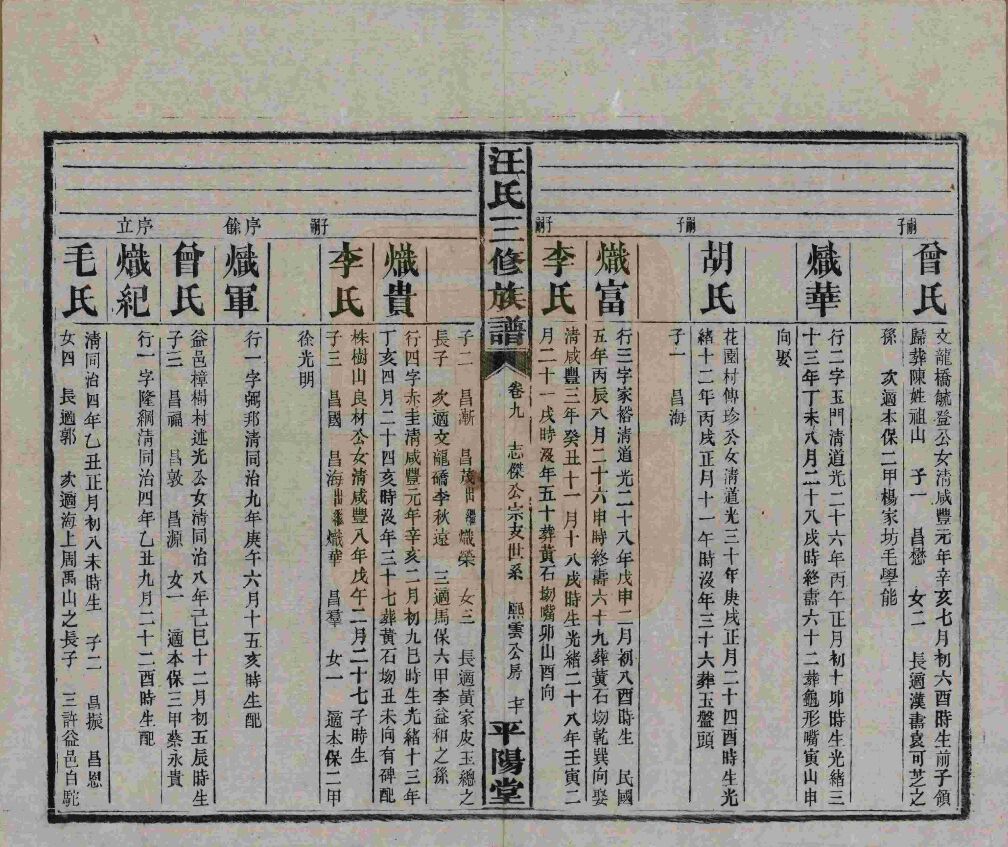 曾氏
子嗣
文龍橋毓登公女清咸豐元年辛亥七月初六酉時生前子領
歸葬陳姓祖山 子一 昌懋 女二 長適漢壽袁可芝之
孫 次適本保二甲楊家坊毛學能
熾華
行二字玉門清道光二十六年丙午正月初十卯時生光緒三
十三年丁未八月二十八戌時終壽六十二葬龜形嘴寅山申
向娶
胡氏
子嗣
花園村傳珍公女清道光三十年庚戌正月二十四酉時生光
緒十二年丙戌正月十一午時沒年三十六葬玉盤頭
子一 昌海
熾富
行三字家裕清道光二十八年戊申二月初八酉時生 民國
五年丙辰八月二十六申時終壽六十九葬黃石坳乾巽向娶
李氏
子嗣
清咸豐三年癸丑十一月十八戌時生光緒二十八年壬寅二
月二十一戌時沒年五十葬黃石坳嘴卯山酉向
汪氏三修族譜
卷九 志傑公宗支世系 熙雲公房
平陽堂
子二 昌漸 昌茂出繼熾榮 女三 長適黃家皮玉總之
長子 次適文龍橋李秋遠 三適馬保六甲李益和之孫
熾貴
行四字赤圭清咸豐元年辛亥二月初九巳時生光緒十三年
丁亥四月二十四亥時沒年三十七葬黃石坳丑未向有碑配
李氏
子嗣
株樹山良材公女清咸豐八年戊午二月二十七子時生
子三 昌國 昌海出繼熾華 昌羣 女一 適本保二甲
徐光明
熾軍
序餘
行一字弼邦清同治九年庚午六月十五亥時生配
曾氏
益邑樟榻村述光公女清同治八年己巳十二月初五辰時生
子三 昌福 昌敦 昌源 女一 適本保三甲蔡永貴
熾紀
序立
行一字隆綱清同治四年乙丑九月二十二酉時生配
毛氏
清同治四年乙丑正月初八未時生 子二 昌振 昌恩
女四 長適郭 次適海上周禹山之長子 三許益邑白駝